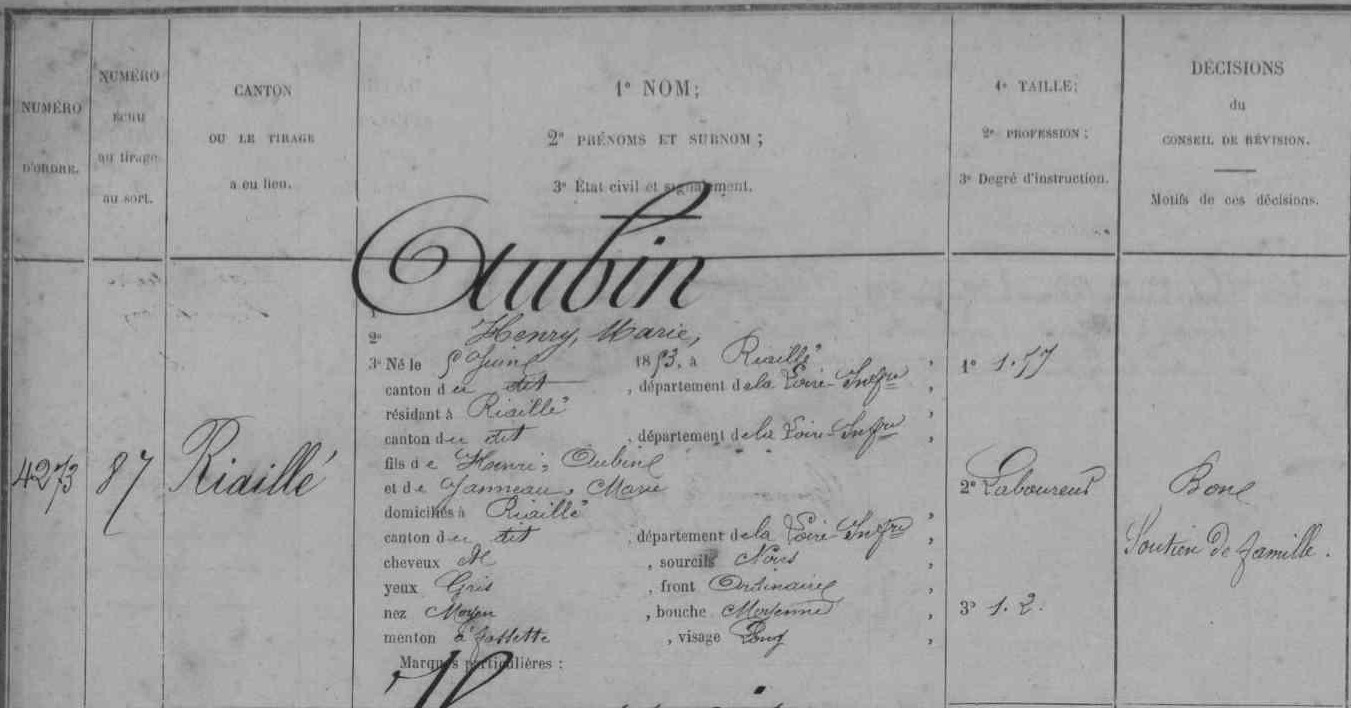 NUMÉRO
D'ORDRE.
NUMÉRO
ÉCHU
au tirage
au sort.
CANTON
OU LE TIRAGE
a eu lieu.
1° NOM;
2° PRÉNOMS ET SURNOM;
3° État civil et signalement.
1° TAILLE;
2° PROFESSION;
3° Degré d'instruction.
DÉCISIONS
du
CONSEIL DE RÉVISION.
Motifs de ces décisions.
4273
87
Riaillé
Aubin
2° Henry, Marie,
3° Né le Juin 1853, à Riaillé,
canton du dit, département de la Loire-Infre,
résidant à Riaillé,
canton du dit, département de la Loire-Infre,
fils de Henri, Aubin
et de Janneau, Marie
domiciliés à Riaillé,
canton du dit, département de la Loire-Infre,
cheveux, sourcils Noirs,
yeux Gris, front Ordinaire,
nez Moyen, bouche Moyenne,
menton à fossette, visage Long,
Marques particulières :
1° 1.77
2° Laboureur
3° 1.2.
Bon
Soutien de famille.